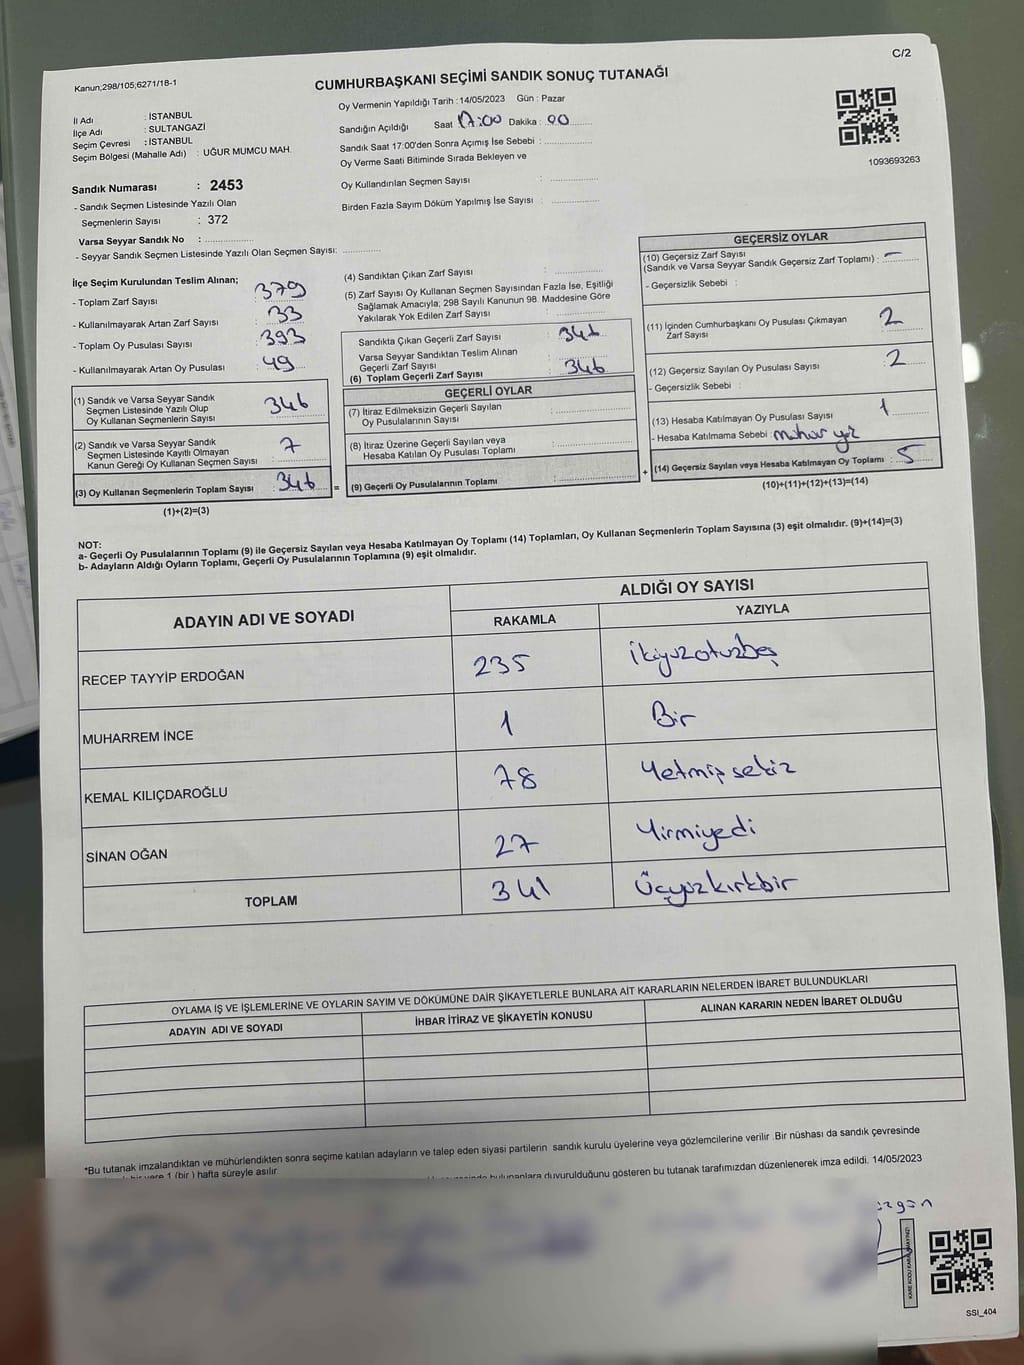 C/2
Kanun;298/105;6271/18-1
CUMHURBAŞKANI SEÇİMİ SANDIK SONUÇ TUTANAĞI
Oy Vermenin Yapıldığı Tarih : 14/05/2023 Gün : Pazar
Sandığın Açıldığı Saat 17:00 Dakika : 00
Sandık Saat 17:00'den Sonra Açımış İse Sebebi :
Oy Verme Saati Bitiminde Sırada Bekleyen ve
Oy Kullandırılan Seçmen Sayısı :
Birden Fazla Sayım Döküm Yapılmış İse Sayısı :
İl Adı : İSTANBUL
İlçe Adı : SULTANGAZİ
Seçim Çevresi : İSTANBUL
Seçim Bölgesi (Mahalle Adı) : UĞUR MUMCU MAH.
1093693263
Sandık Numarası : 2453
- Sandık Seçmen Listesinde Yazılı Olan
Seçmenlerin Sayısı : 372
Varsa Seyyar Sandık No :
- Seyyar Sandık Seçmen Listesinde Yazılı Olan Seçmen Sayısı:
İlçe Seçim Kurulundan Teslim Alınan;
- Toplam Zarf Sayısı : 379
- Kullanılmayarak Artan Zarf Sayısı : 33
- Toplam Oy Pusulası Sayısı : 393
- Kullanılmayarak Artan Oy Pusulası : 49
(1) Sandık ve Varsa Seyyar Sandık
Seçmen Listesinde Yazılı Olup
Oy Kullanan Seçmenlerin Sayısı : 346
(2) Sandık ve Varsa Seyyar Sandık
Seçmen Listesinde Kayıtlı Olmayan
Kanun Gereği Oy Kullanan Seçmen Sayısı : 7
(3) Oy Kullanan Seçmenlerin Toplam Sayısı : 346 =
(1)+(2)=(3)
(4) Sandıktan Çıkan Zarf Sayısı :
(5) Zarf Sayısı Oy Kullanan Seçmen Sayısından Fazla İse, Eşitliği
Sağlamak Amacıyla; 298 Sayılı Kanunun 98. Maddesine Göre
Yakılarak Yok Edilen Zarf Sayısı :
Sandıkta Çıkan Geçerli Zarf Sayısı : 346
Varsa Seyyar Sandıktan Teslim Alınan
Geçerli Zarf Sayısı :
(6) Toplam Geçerli Zarf Sayısı : 346
GEÇERLİ OYLAR
(7) İtiraz Edilmeksizin Geçerli Sayılan
Oy Pusulalarının Sayısı :
(8) İtiraz Üzerine Geçerli Sayılan veya
Hesaba Katılan Oy Pusulası Toplamı :
(9) Geçerli Oy Pusulalarının Toplamı : +
GEÇERSİZ OYLAR
(10) Geçersiz Zarf Sayısı
(Sandık ve Varsa Seyyar Sandık Geçersiz Zarf Toplamı) : –
- Geçersizlik Sebebi :
(11) İçinden Cumhurbaşkanı Oy Pusulası Çıkmayan
Zarf Sayısı : 2
(12) Geçersiz Sayılan Oy Pusulası Sayısı : 2
- Geçersizlik Sebebi :
(13) Hesaba Katılmayan Oy Pusulası Sayısı : 1
- Hesaba Katılmama Sebebi :
(14) Geçersiz Sayılan veya Hesaba Katılmayan Oy Toplamı : 5
(10)+(11)+(12)+(13)=(14)
NOT:
a- Geçerli Oy Pusulalarının Toplamı (9) ile Geçersiz Sayılan veya Hesaba Katılmayan Oy Toplamı (14) Toplamları, Oy Kullanan Seçmenlerin Toplam Sayısına (3) eşit olmalıdır. (9)+(14)=(3)
b- Adayların Aldığı Oyların Toplamı, Geçerli Oy Pusulalarının Toplamına (9) eşit olmalıdır.
ADAYIN ADI VE SOYADI ALDIĞI OY SAYISI
RAKAMLA YAZIYLA
RECEP TAYYİP ERDOĞAN 235 ikiyüzotuzbeş
MUHARREM İNCE 1 Bir
KEMAL KILIÇDAROĞLU 78 Yetmiş sekiz
SİNAN OĞAN 27 Yirmiyedi
TOPLAM 341 Üçyüzkırkbir
OYLAMA İŞ VE İŞLEMLERİNE VE OYLARIN SAYIM VE DÖKÜMÜNE DAİR ŞİKAYETLERLE BUNLARA AİT KARARLARIN NELERDEN İBARET BULUNDUKLARI
ADAYIN ADI VE SOYADI İHBAR İTİRAZ VE ŞİKAYETİN KONUSU ALINAN KARARIN NEDEN İBARET OLDUĞU
*Bu tutanak imzalandıktan ve mühürlendikten sonra seçime katılan adayların ve talep eden siyasi partilerin sandık kurulu üyelerine veya gözlemcilerine verilir .Bir nüshası da sandık çevresinde
bir yere 1 (bir ) hafta süreyle asılır
bulunanlara duyurulduğunu gösteren bu tutanak tarafımızdan düzenlenerek imza edildi. 14/05/2023
SSI_404